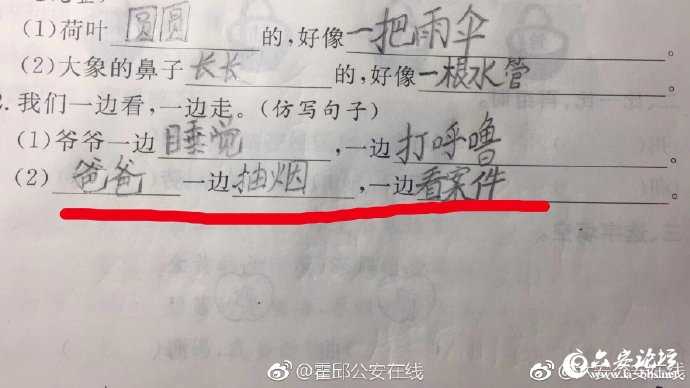 (1)荷叶圆圆的,好像一把雨伞。
(2)大象的鼻子长长的,好像一根水管。
2.我们一边看,一边走。(仿写句子)
(1)爷爷一边睡觉,一边打呼噜。
(2)爸爸一边抽烟,一边看案件。
@霍邱公安在线
六安论坛